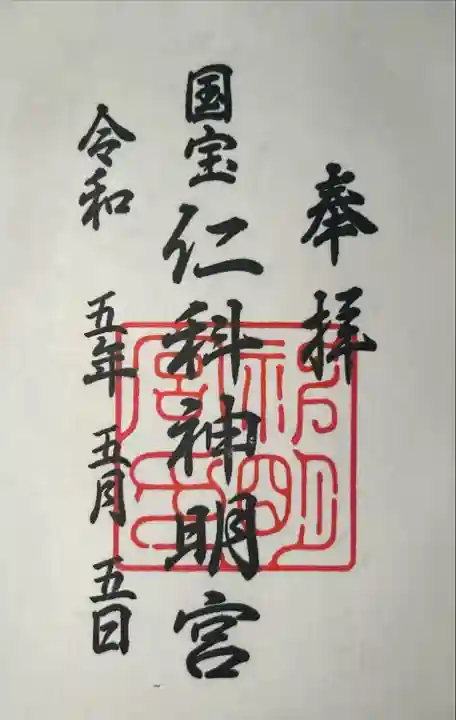 奉拝
国宝 仁科神明宮
令和 五年 五月 五日